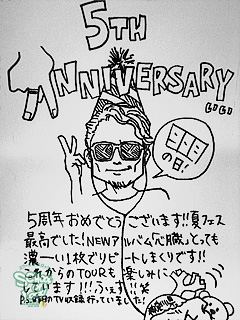 5TH
ANNIVERSARY
GOGO
の日!
5周年おめでとうございます!!夏フェス
最高でした!NEWアルバム「心臓」とっても
濃ーい1枚でリピートしまくりです!!
これからのTOURも楽しみにし
ています!!!ふぇす!!笑
TV収録行っていました!